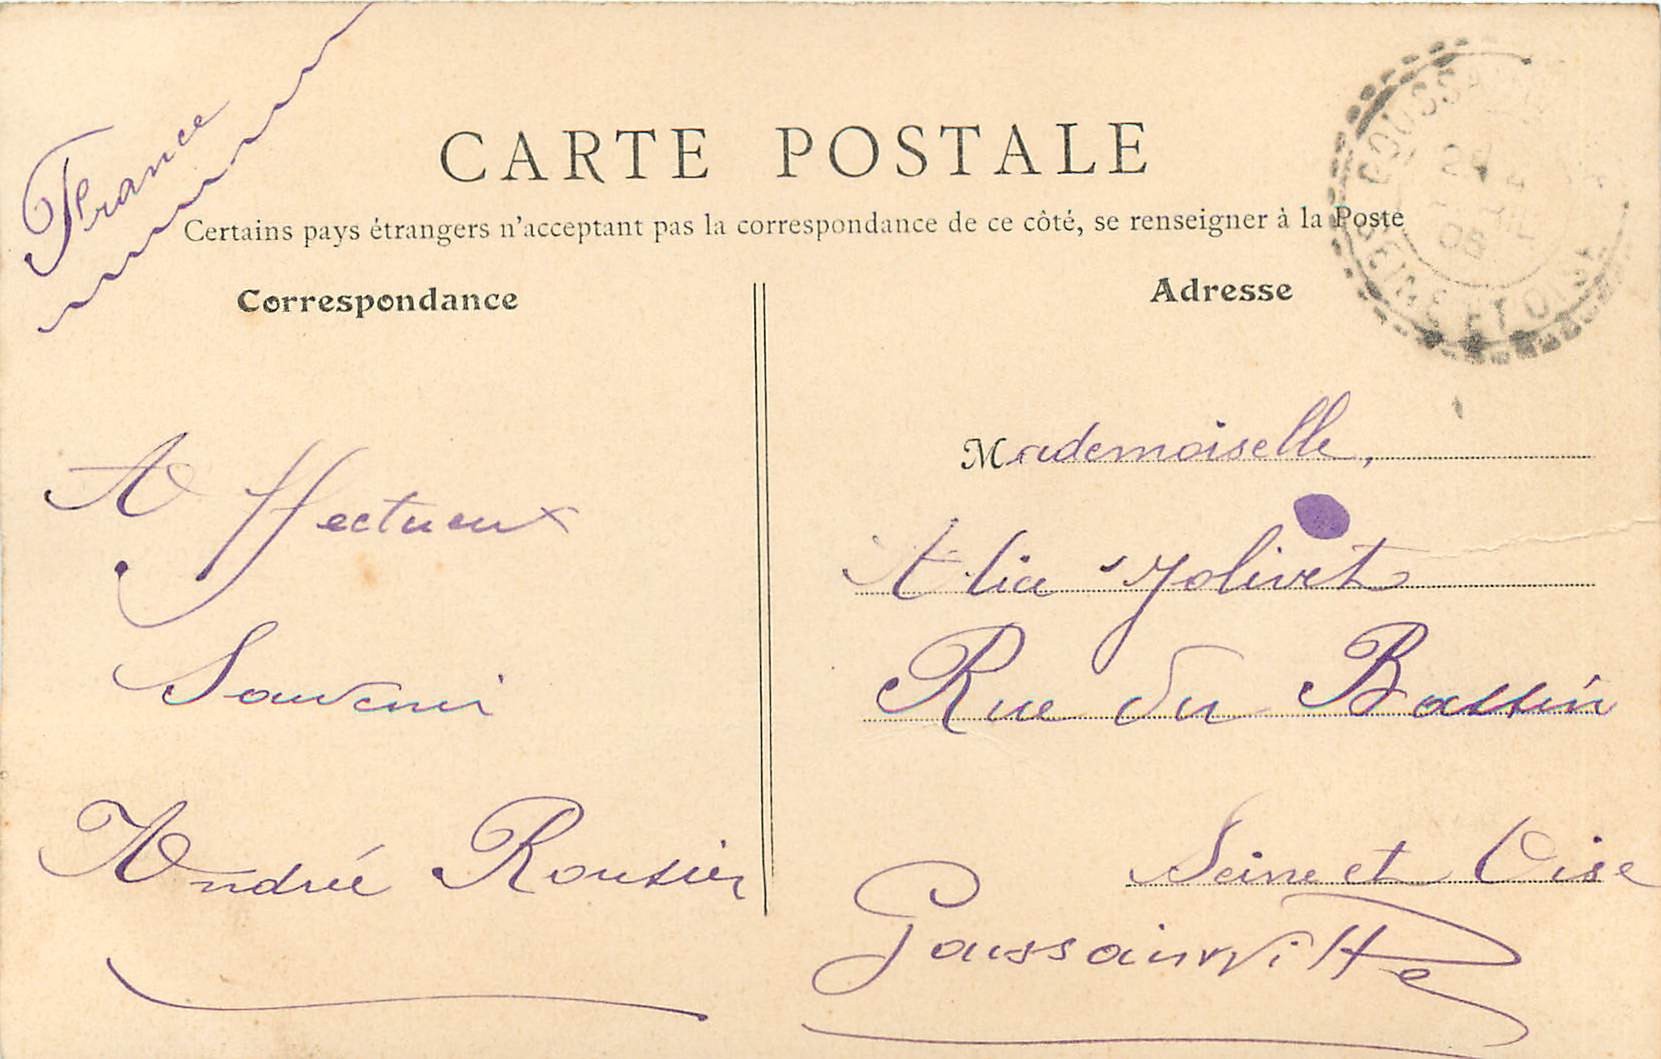 France
CARTE POSTALE
Certains pays étrangers n'acceptant pas la correspondance de ce côté, se renseigner à la Poste
Correspondance
Affectueux
Souvenir
André Rousier
Adresse
Mademoiselle,
Alia Jolivet
Rue du Bassin
Seine et Oise
Goussainville
GOUSSAINVILLE
SEINE ET OISE